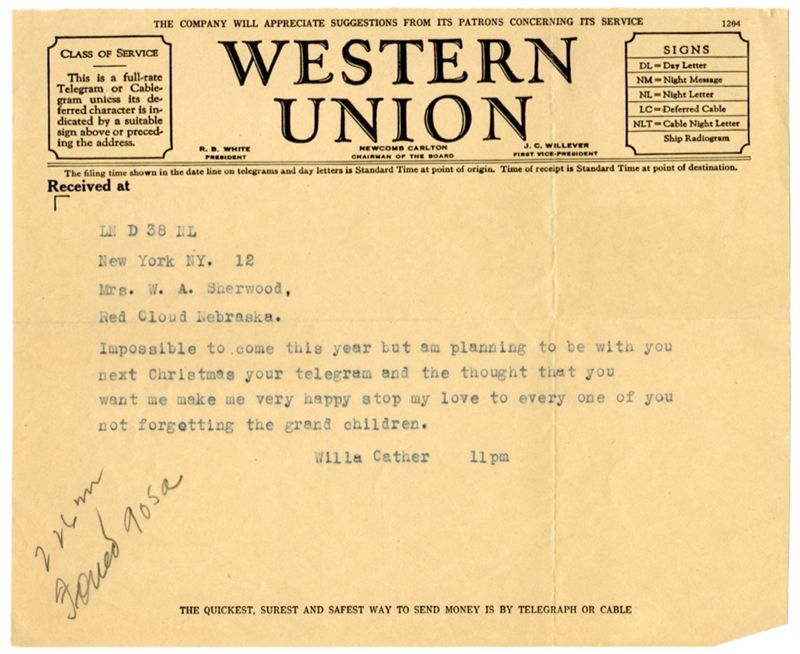 THE COMPANY WILL APPRECIATE SUGGESTIONS FROM ITS PATRONS CONCERNING ITS SERVICE
1204
CLASS OF SERVICE
This is a full-rate
Telegram or Cable-
gram unless its de-
ferred character is in-
dicated by a suitable
sign above or preced-
ing the address.
WESTERN
UNION
SIGNS
DL = Day Letter
NM = Night Message
NL = Night Letter
LC = Deferred Cable
NLT = Cable Night Letter
Ship Radiogram
R. B. WHITE
PRESIDENT
NEWCOMB CARLTON
CHAIRMAN OF THE BOARD
J. C. WILLEVER
FIRST VICE-PRESIDENT
The filing time shown in the date line on telegrams and day letters is Standard Time at point of origin. Time of receipt is Standard Time at point of destination.
Received at
LN D 38 NL
New York NY. 12
Mrs. W. A. Sherwood,
Red Cloud Nebraska.
Impossible to come this year but am planning to be with you
next Christmas your telegram and the thought that you
want me make me very happy stop my love to every one of you
not forgetting the grand children.
Willa Cather 11pm
905a
THE QUICKEST, SUREST AND SAFEST WAY TO SEND MONEY IS BY TELEGRAPH OR CABLE